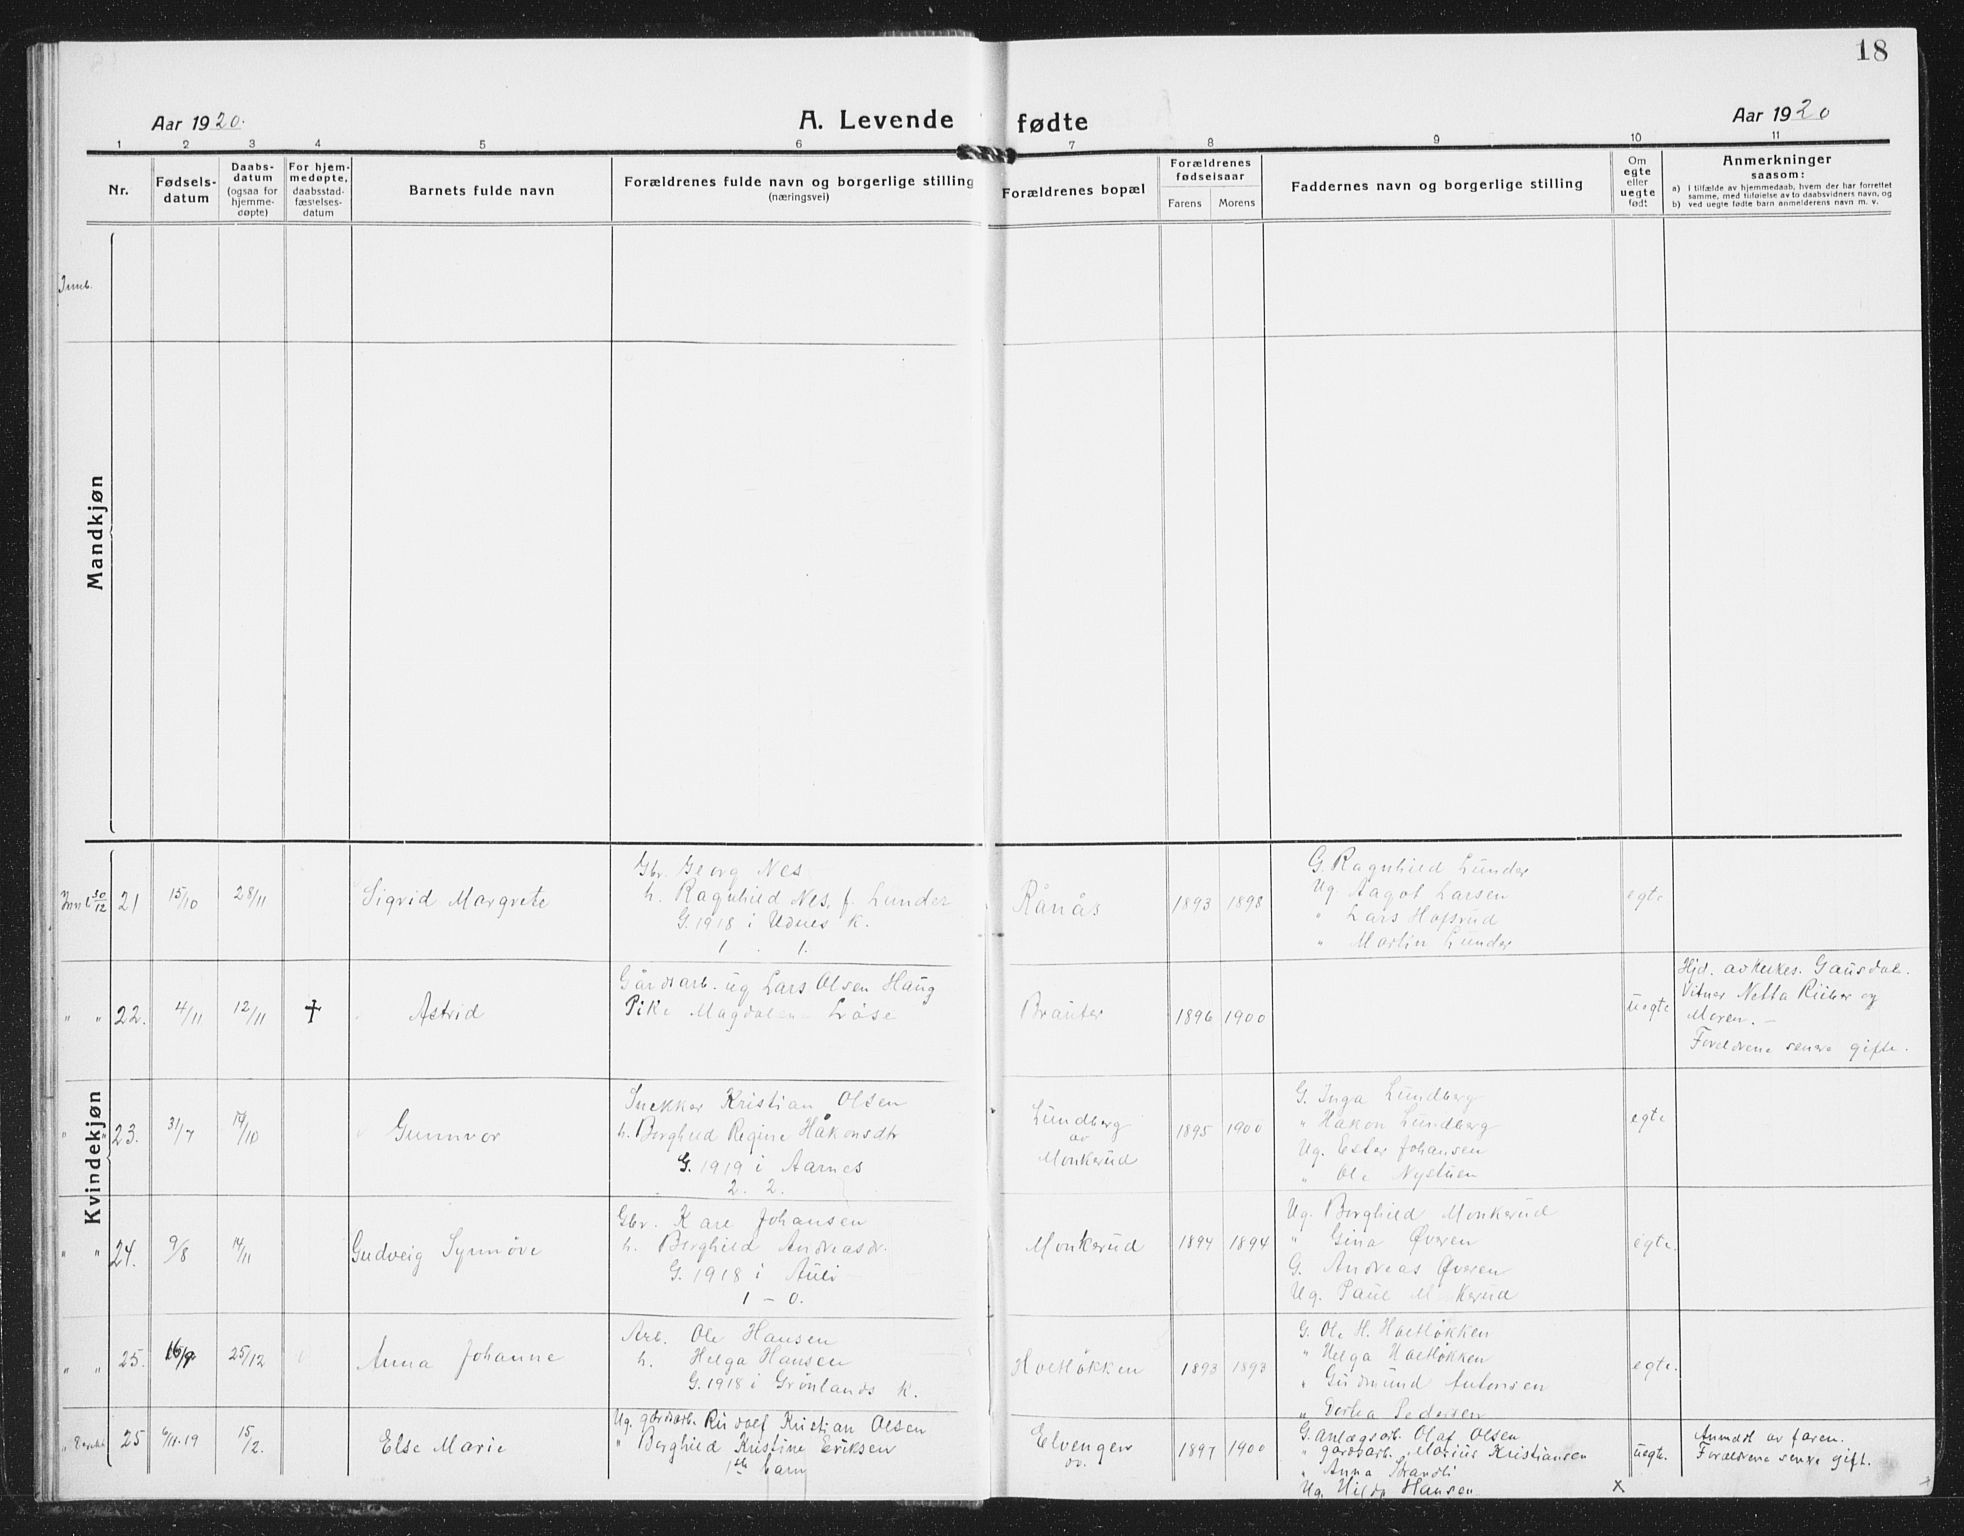 18
Aar 1920.
A. Levende fødte
Aar 1920
1 2 3 4 5 6 7 8 9 10 11
Nr.
Fødsels-datum
Daabs-datum (ogsaa for hjemme-døpte)
For hjem-medøpte, daabsstad-fæstelses-datum
Barnets fulde navn
Forældrenes fulde navn og borgerlige stilling
(næringsvei)
Forældrenes bopæl
Forældrenes fødselsaar
Farens Morens
Faddernes navn og borgerlige stilling
Om egte eller uegte født
Anmerkninger
saasom:
a) i tilfælde av hjemmedaab, hvem der har forrettet
samme, med tilføielse av to daabsvidners navn, og
b) ved uegte fødte barn anmelderens navn m. v.
Innb.
Mandkjøn
Kvindekjøn
Innb 30/12 21 15/10 28/11 Sigrid Margrete
Gbr. Georg Nes
h. Ragnhild Nes, f. Lunder
G. 1918 i Udnes K.
1 . 1.
Rånås 1893 1898
G. Ragnhild Lunder
Ug. Aagot Larsen
" Lars Hofsrud
" Martin Lunder
egte
" " 22. 4/11 12/11 † Astrid
Gårdsarb. ug Lars Olsen Haug
Pike Magdalena Løse
Brauter 1896 1900
uegte
Hjd. av kirkes. Gausdal.
Vitner Netta Riiber og
Moren. –
Foreldrene senere gifte.
" " 23. 31/7 17/10 Gunnvor
Snekker Kristian Olsen
h. Borghild Regine Håkonsdtr
G. 1919 i Aarnes
2. 2.
Lundberg
av
Monkerud
1895 1900
G. Inga Lundberg
" Håkon Lundberg
Ug. Ester Johansen
" Ole Nystuen
egte
" " 24. 9/8 14/11 Gudveig Synnøve
Gbr. Kare Johansen
h. Borghild Andreasdr.
G. 1918 i Auli
1 – 0.
Monkerud 1894 1894
Ug. Borghild Monkerud
" Gina Øveren
G. Andreas Øveren
Ug. Paul Monkerud
egte.
" " 25. 16/9 25/12 Anna Johanne
Arb. Ole Hansen
h. Helga Hansen
G. 1918 i Grønlands K.
Holtløkken 1893 1893
G. Ole H. Holtløkken
" Helga Holtløkken
" Gudmund Antonsen
" Dorthea Pedersen
egte.
" 25 6/11.19 15/2. Else Marie
Ug. gårdsarb. Rudolf Kristian Olsen
" Borghild Kristine Eriksen
1ste barn
Elvengen
ov.
1897 1900
G. Anlægsarb. Olaf Olsen
" gårdsarb. Marius Kristiansen
" Anna Strandli
Ug. Hilda Hansen
uegte.
x
Anmeldt av faren.
Foreldrene senere gift.